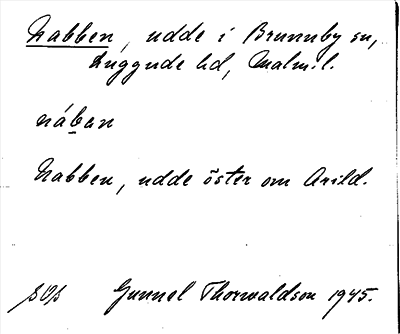 Nabben, udde i Brunnby sn,
Luggude hd, Malm.l.
nában
Nabben, udde öster om Arild.
Gunnel Thorwaldson 1945.